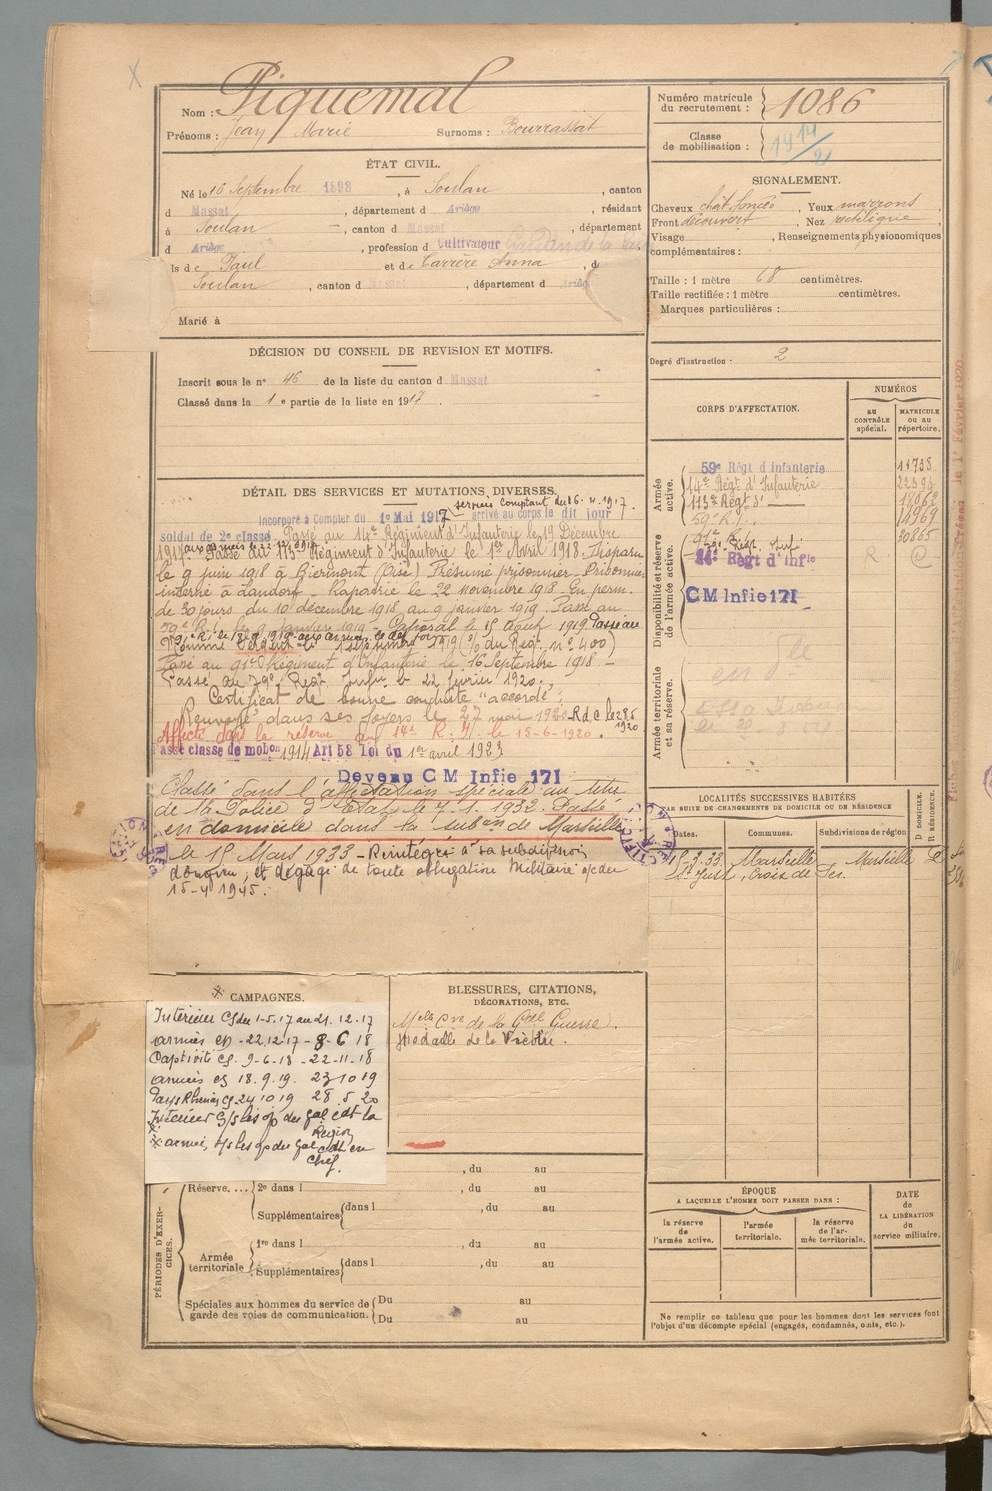 Piquemal
Nom :
Prénoms : Jean Marie Surnoms : Bourrassat
Numéro matricule
du recrutement : 1086
Classe
de mobilisation : 1914/2
ÉTAT CIVIL.
Né le 16 Septembre 1898, à Soulan, canton
d Massat, département d Ariège, résidant
à Soulan, canton d Massat, département
d Ariège, profession d Cultivateur
ls de Paul et de Carrère Anna, d
Soulan, canton d Massat, département d Ariège
Marié à
SIGNALEMENT.
Cheveux chât foncé, Yeux marrons
Front découvert, Nez rectiligne
Visage , Renseignements physionomiques
complémentaires :
Taille : 1 mètre 68 centimètres.
Taille rectifiée : 1 mètre centimètres.
Marques particulières :
Degré d'instruction : 2
DÉCISION DU CONSEIL DE REVISION ET MOTIFS.
Inscrit sous le n° 46 de la liste du canton d Massat
Classé dans la 1e partie de la liste en 1917.
CORPS D'AFFECTATION.
NUMÉROS
AU
CONTRÔLE
spécial.
MATRICULE
ou au
répertoire.
Armée
active.
59e Régt d'Infanterie 11735
14e Régt d'Infanterie 22394
113e Régt d°
59e R.I. 14969
91e 20865
Disponibilité et réserve
de l'armée active.
14e Régt d'Infie R
CM Infie 171
Armée territoriale
et sa réserve.
DÉTAIL DES SERVICES ET MUTATIONS DIVERSES.
service comptant du 16.4.1917.
Incorporé à Compter du 1e Mai 1917 arrivé au corps le dit jour
soldat de 2e classe. Passé au 14e Régiment d'Infanterie le 19 Décembre
1917. Passé au 113e Régiment d'Infanterie le 1er Avril 1918. Disparu
le 9 juin 1918 à Biermont (Oise) Présumé prisonnier. Prisonnier
interné à Landorf. Rapatrié le 22 novembre 1918. En perm.
de 30 jours du 10 décembre 1918 au 9 janvier 1919. Passé au
59e R.I. le 9 janvier 1919. Caporal le 15 Août 1919. Passé au
91e R.I. le 18.9.1919
Nommé Sergent le 1 septembre 1919 (O/ du Regt. n° 400)
Passé au 91e Régiment d'Infanterie le 16 Septembre 1918 -
Passé au 79e Regt. Infie le 22 février 1920.
Certificat de bonne conduite "accordé".
Renvoyé dans ses foyers le 27 mai 1920 R d c le 28 5 1920
Affecté dans la réserve au 14e R.I. le 15-6-1920.
assé classe de mobon 1914 Art 58 Loi du 1er avril 1923
Devenu CM Infie 171
Classé dans l'affectation spéciale au titre
de la Police d'Etat le 7-1-1932. Passé
en domicile dans la subon de Marseille
le 15 Mars 1933 - Réintégré à sa subdivision
d'origine, et dégagé de toute obligation Militaire
15-4 1945.
LOCALITÉS SUCCESSIVES HABITÉES
PAR SUITE DE CHANGEMENTS DE DOMICILE OU DE RÉSIDENCE
Dates. Communes. Subdivisions de région D DOMICILE. R RÉSIDENCE.
15-3-33 Marseille Marseille D
St Just, Croix de
CAMPAGNES.
Intérieur CS du 1-5.17 au 21.12-17
armées CD - 22.12-17 - 8-6 18
Captivité CS. 9-6-18 - 22-11-18
armées CS 18.9.19. 23 10 19
Pays Rhénans CS 24 10 19 28 5 20
Intérieur S/s les op du gal cdt la
Région
armées s/s les op du gal cdt en
chef.
BLESSURES, CITATIONS,
DÉCORATIONS, ETC.
Mlle Cve de la Gde Guerre.
Médaille de la Victoire.
PÉRIODES D'EXER-
CICES.
, du au
Réserve.... 2e dans l , du au
Supplémentaires dans l , du au
Armée
territoriale 1re dans l , du au
Supplémentaires dans l , du au
Spéciales aux hommes du service de
garde des voies de communication. Du au
Du au
ÉPOQUE
A LAQUELLE L'HOMME DOIT PASSER DANS :
la réserve
de
l'armée active.
l'armée
territoriale.
la réserve
de l'ar-
mée territoriale.
DATE
de
LA LIBÉRATION
du
service militaire.
Ne remplir ce tableau que pour les hommes dont les services font
l'objet d'un décompte spécial (engagés, condamnés, omis, etc.).